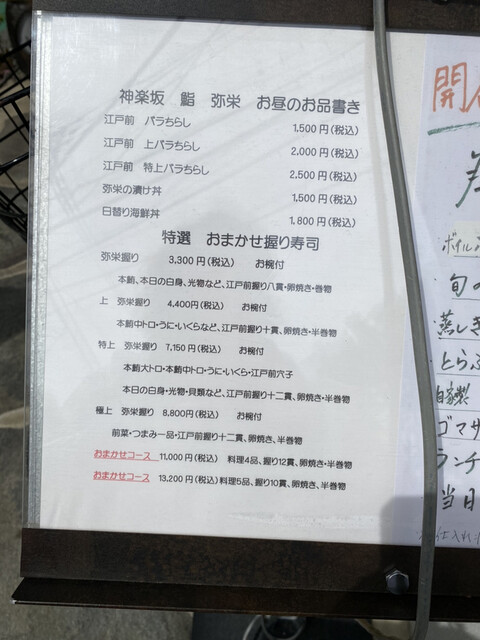 神楽坂　鮨　弥栄　お昼のお品書き
江戸前　バラちらし　1,500円(税込)
江戸前　上バラちらし　2,000円(税込)
江戸前　特上バラちらし　2,500円(税込)
弥栄の漬け丼　1,500円(税込)
日替り海鮮丼　1,800円(税込)
特選　おまかせ握り寿司
弥栄握り　3,300円(税込)　お椀付
本鮪、本日の白身、光物など、江戸前握り八貫・卵焼き・巻物
上　弥栄握り　4,400円(税込)　お椀付
本鮪中トロ・うに・いくらなど、江戸前握り十貫、卵焼き・半巻物
特上　弥栄握り　7,150円(税込)　お椀付
本鮪大トロ・本鮪中トロ・うに・いくら・江戸前穴子
本日の白身・光物・貝類など、江戸前握り十二貫、卵焼き・半巻物
極上　弥栄握り　8,800円(税込)　お椀付
前菜・つまみ一品・江戸前握り十二貫、卵焼き、半巻物
おまかせコース　11,000円(税込)　料理4品、握り12貫、卵焼き・半巻物
おまかせコース　13,200円(税込)料理5品、握り10貫、卵焼き、半巻物
開
ボイル
旬の
蒸し
とらふ
自家製
ゴマサ
ランチ
当日
仕入れ